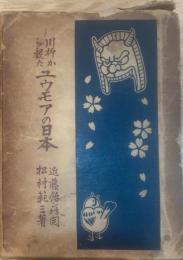 川柳から観た
ユウモアの日本
近藤飴ン坊閲
松村範三著